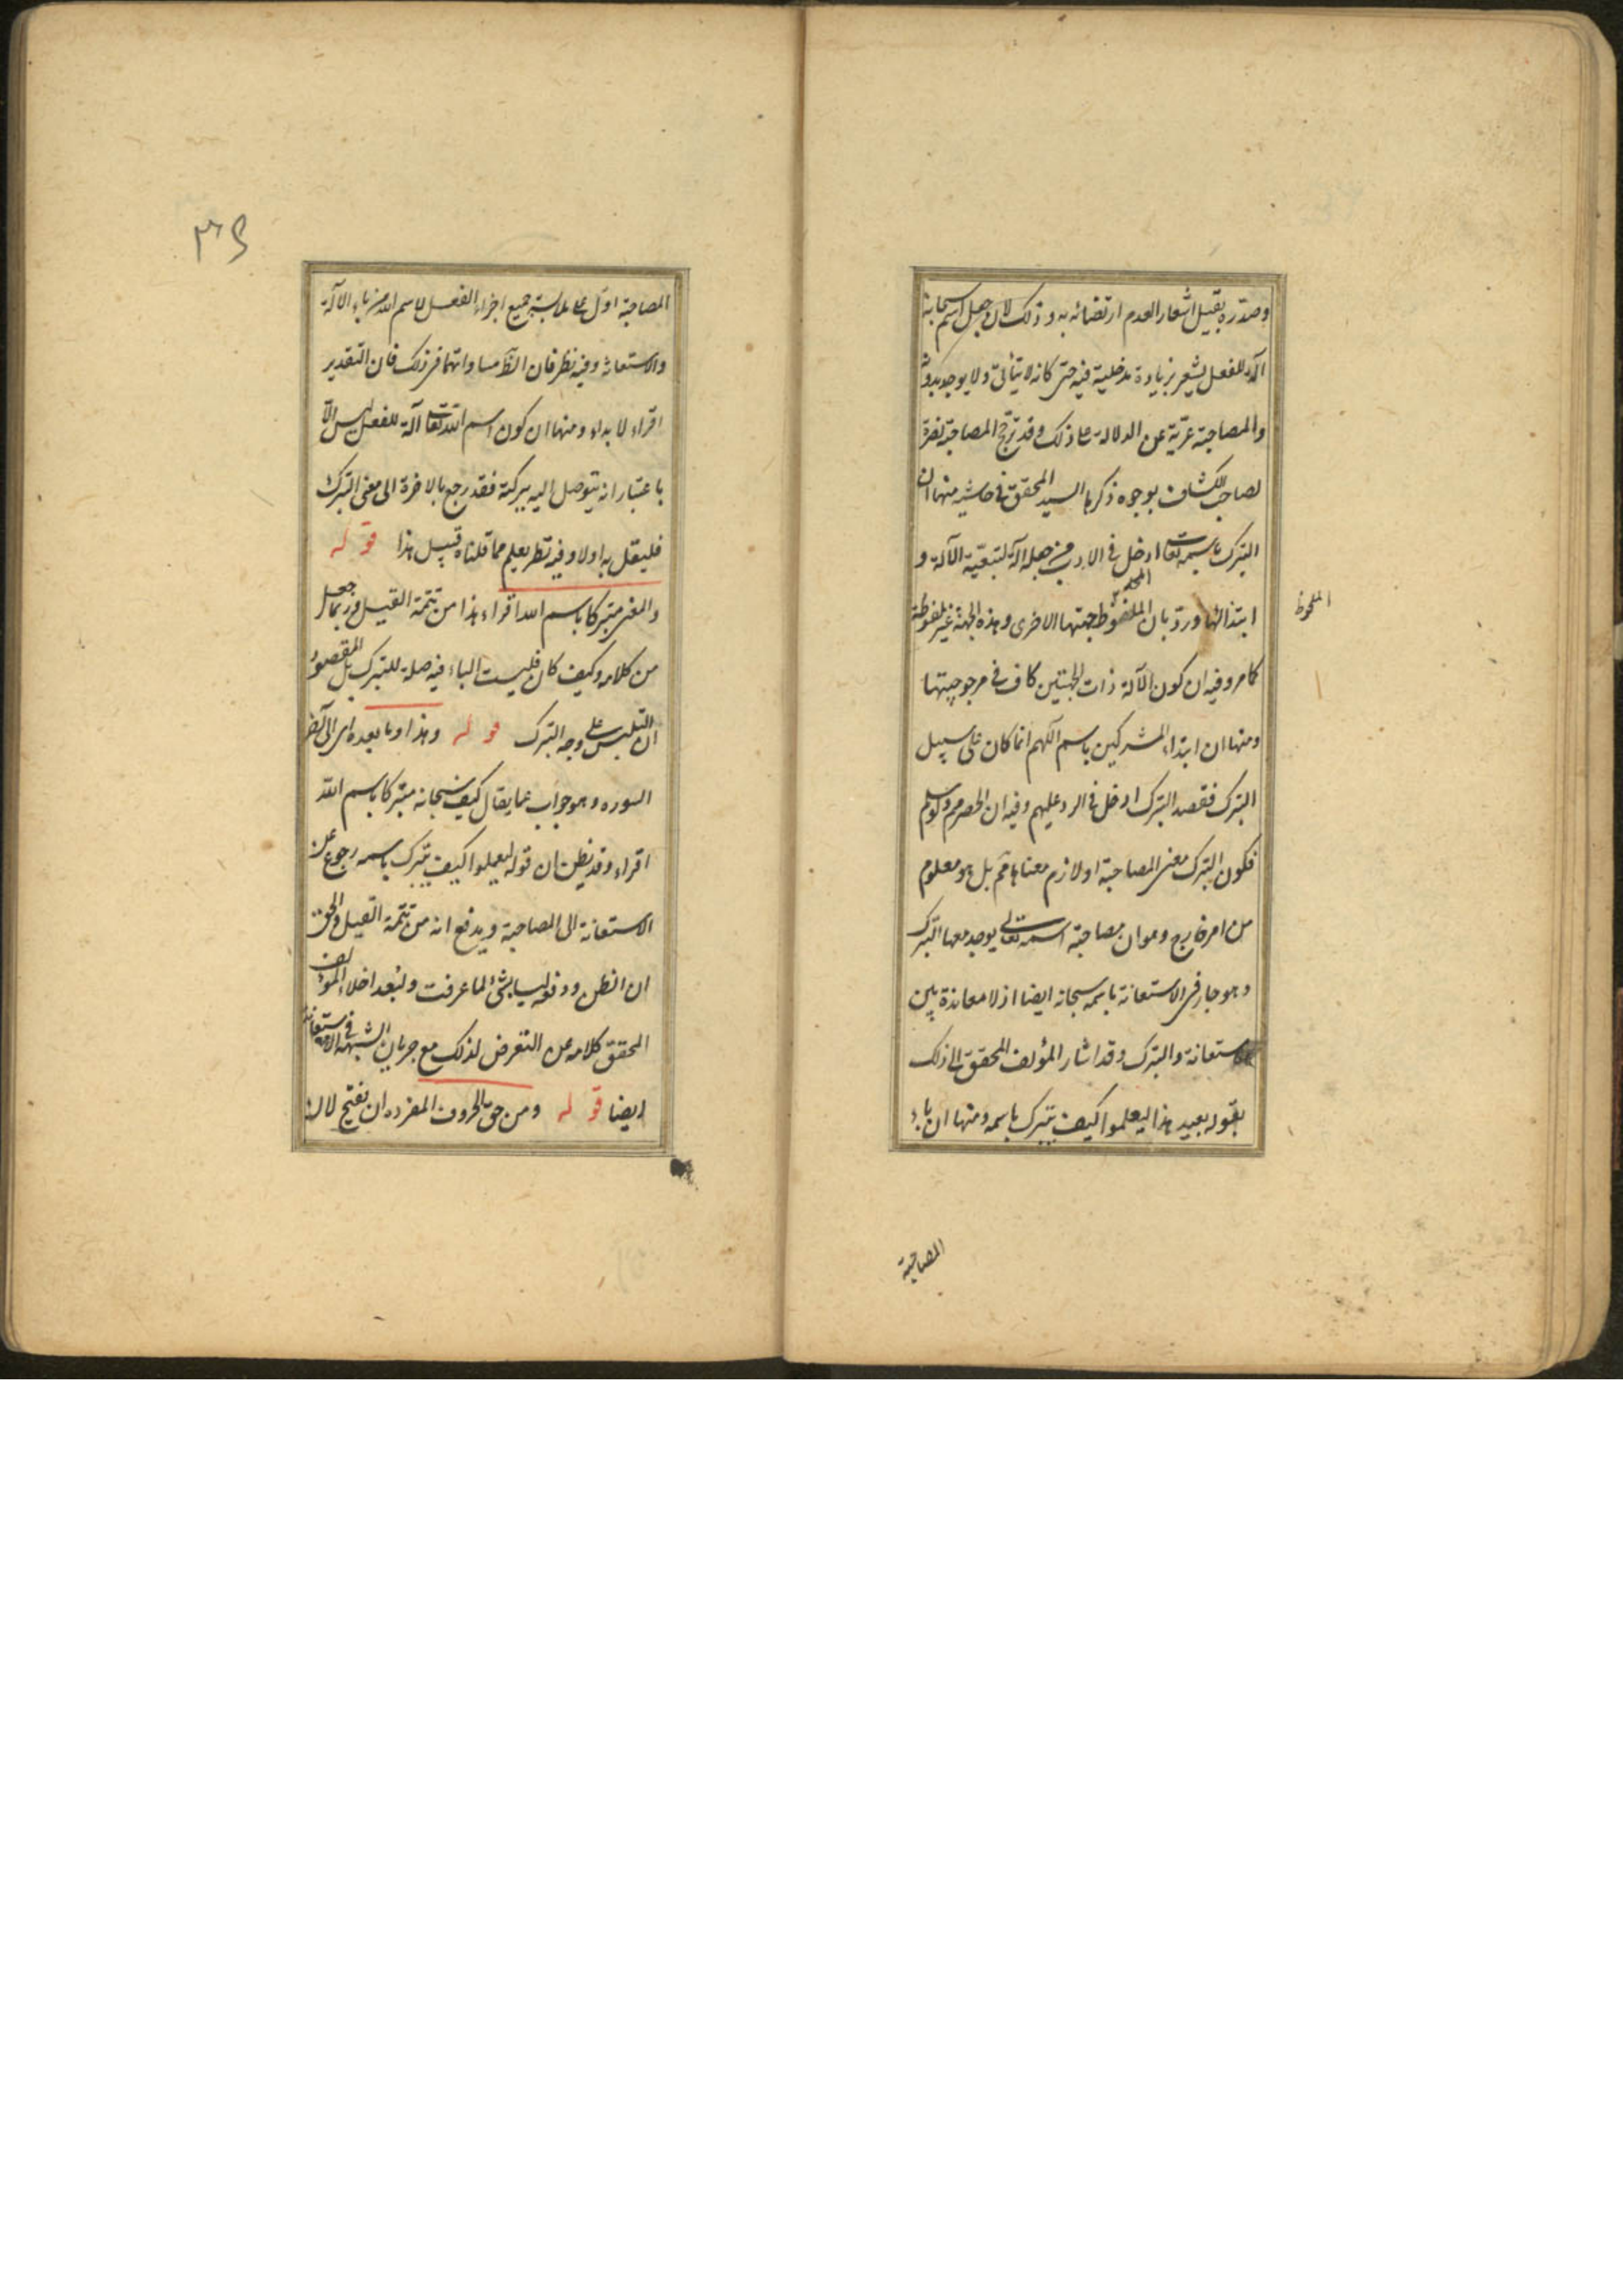 وصدره بقيل اشعار العدم ارتضائه به وذلك لان جعل اسم سبحانه
آلة للفعل يشعر بزيادة مدخلية فيه حتى كانه لا يتأتى ولا يوجد بدونه
والمصاحبة عرية عن الدلالة على ذلك وقد ترجح المصاحبة نصرة
لصاحب الكشاف بوجوه ذكرها السيد المحقق في حاشيته منها ان
التبرك باسمه تعالى ادخل في الادب من جعله آلة لتبعية الآلة و
ابتذالها ورد بان الملفوظ جهتها الاخرى وهذه الجهة غير ملفوظة
الملحوظ
كما مر وفيه ان كون الآلة ذات الجهتين كاف في مرجوحيتها
ومنها ان ابتداء المشركين باسم آلهتهم انما كان على سبيل
التبرك فقصد التبرك ادخل في الرد عليهم وفيه ان الحصر مم ولو سلم
فكون التبرك معنى المصاحبة او لازم معناها مم بل هو معلوم
من امر خارج وهو ان مصاحبة اسمه تعالى يوجد معها التبرك
وهو جار في الاستعانة باسمه سبحانه ايضا اذ لا معاندة بين
الاستعانة والتبرك وقد اشار المؤلف المحقق الى ذلك
بقوله بعيد هذا ليعلموا كيف يتبرك باسمه ومنها ان باء
المصاحبة
المصاحبة ادل على ملابسة جميع اجزاء الفعل لاسم الله من باء الآلة
والاستعانة وفيه نظر فان الظ مساواتهما في ذلك فان التقدير
اقراء لا بداء ومنها ان كون اسم الله تعالى آلة للفعل ليس الا
باعتبار انه يتوصل اليه ببركته فقد رجع بالاخرة الى معنى التبرك
فليقل به اولا وفيه نظر يعلم مما قلناه قبيل هذا قوله
والمعنى متبركا باسم الله اقراء هذا من تتمة القيل وربما جعل
من كلامه وكيف كان فليست الباء فيه صلة للتبرك بل المقصود
ان التلبس على وجه التبرك قوله وهذا وما بعده اى الى آخر
السوره وهو جواب عما يقال كيف سبحانه متبركا باسم الله
اقراء وقد يظن ان قوله ليعلموا كيف يتبرك باسمه رجوع عن
الاستعانة الى المصاحبة ويدفع انه من تتمة القيل والحق
ان الظن ودفعه ليسا بشئ لما عرفت ولبعد اخلاء المؤلف
المحقق كلامه عن التعرض لذلك مع جريان الشبهة في الاستعانة
ايضا قوله ومن حق الحروف المفرده ان تفتح لان